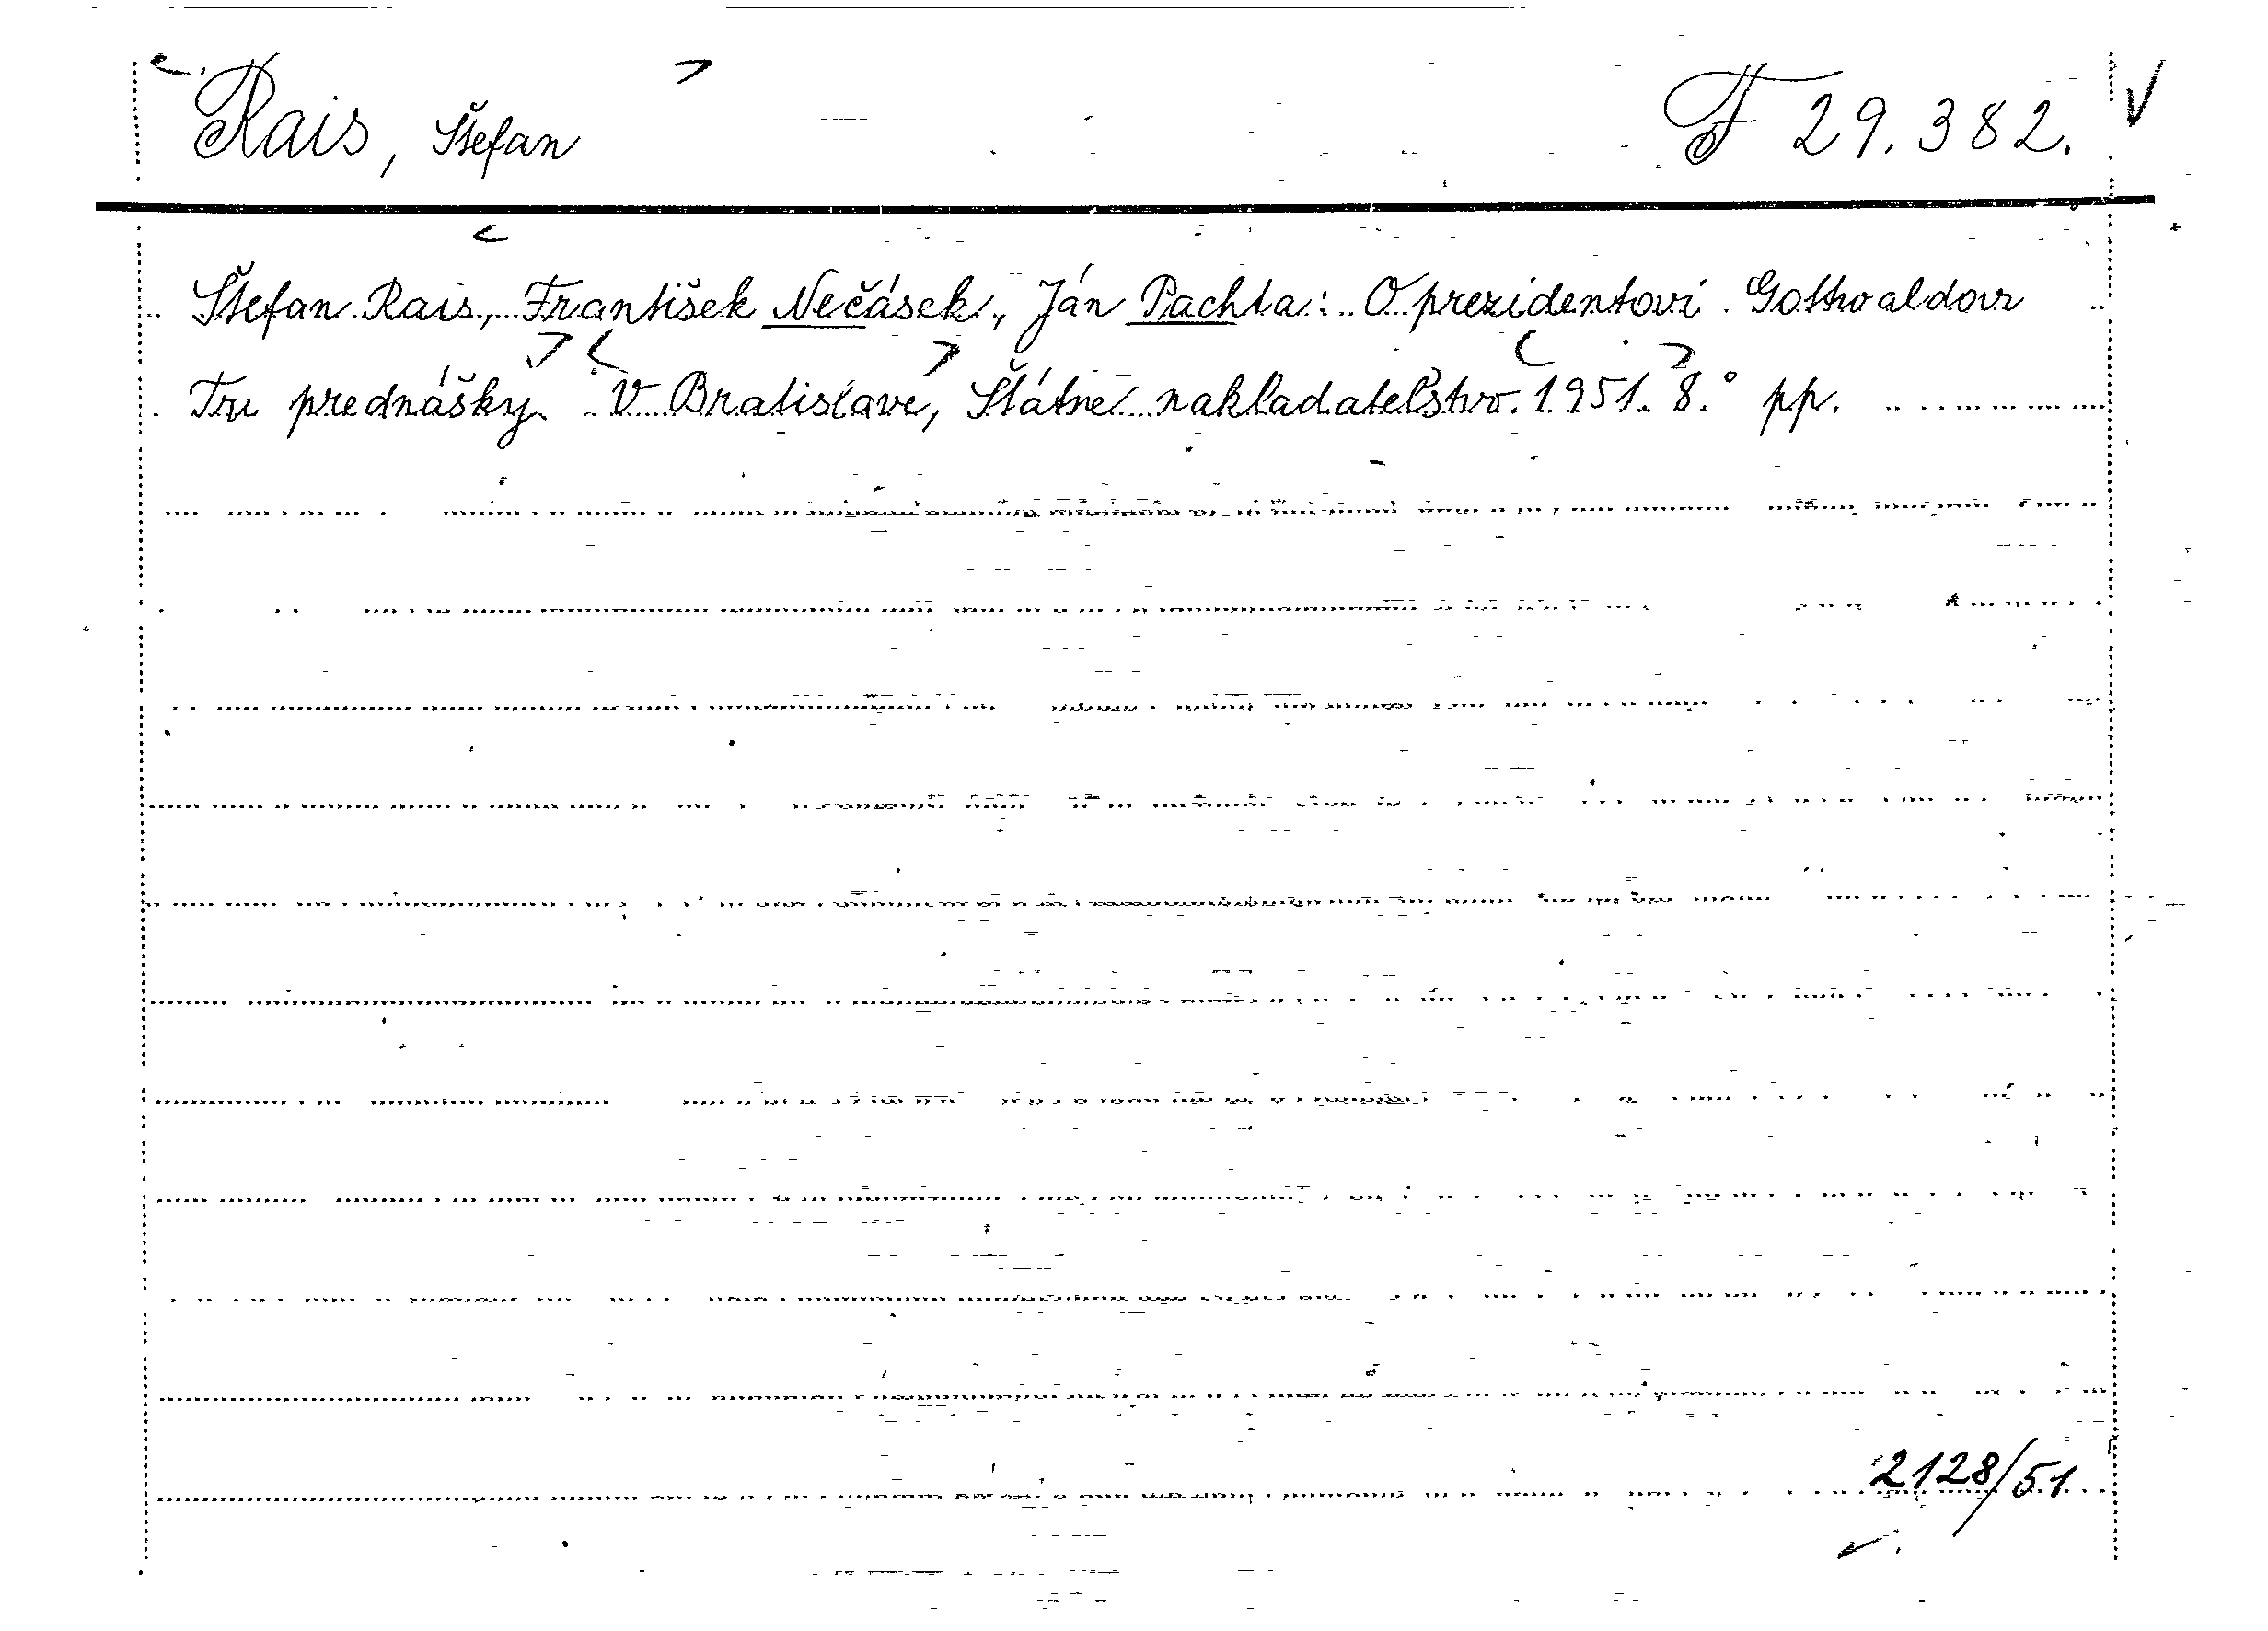 Rais, Štefan F 29.382.
Štefan Rais, František Nečásek, Ján Pachta: O prezidentovi Gottwaldovi
Tri prednášky. V Bratislave, Štátne nakladateľstvo. 1951. 8.° pp.
2128/51.